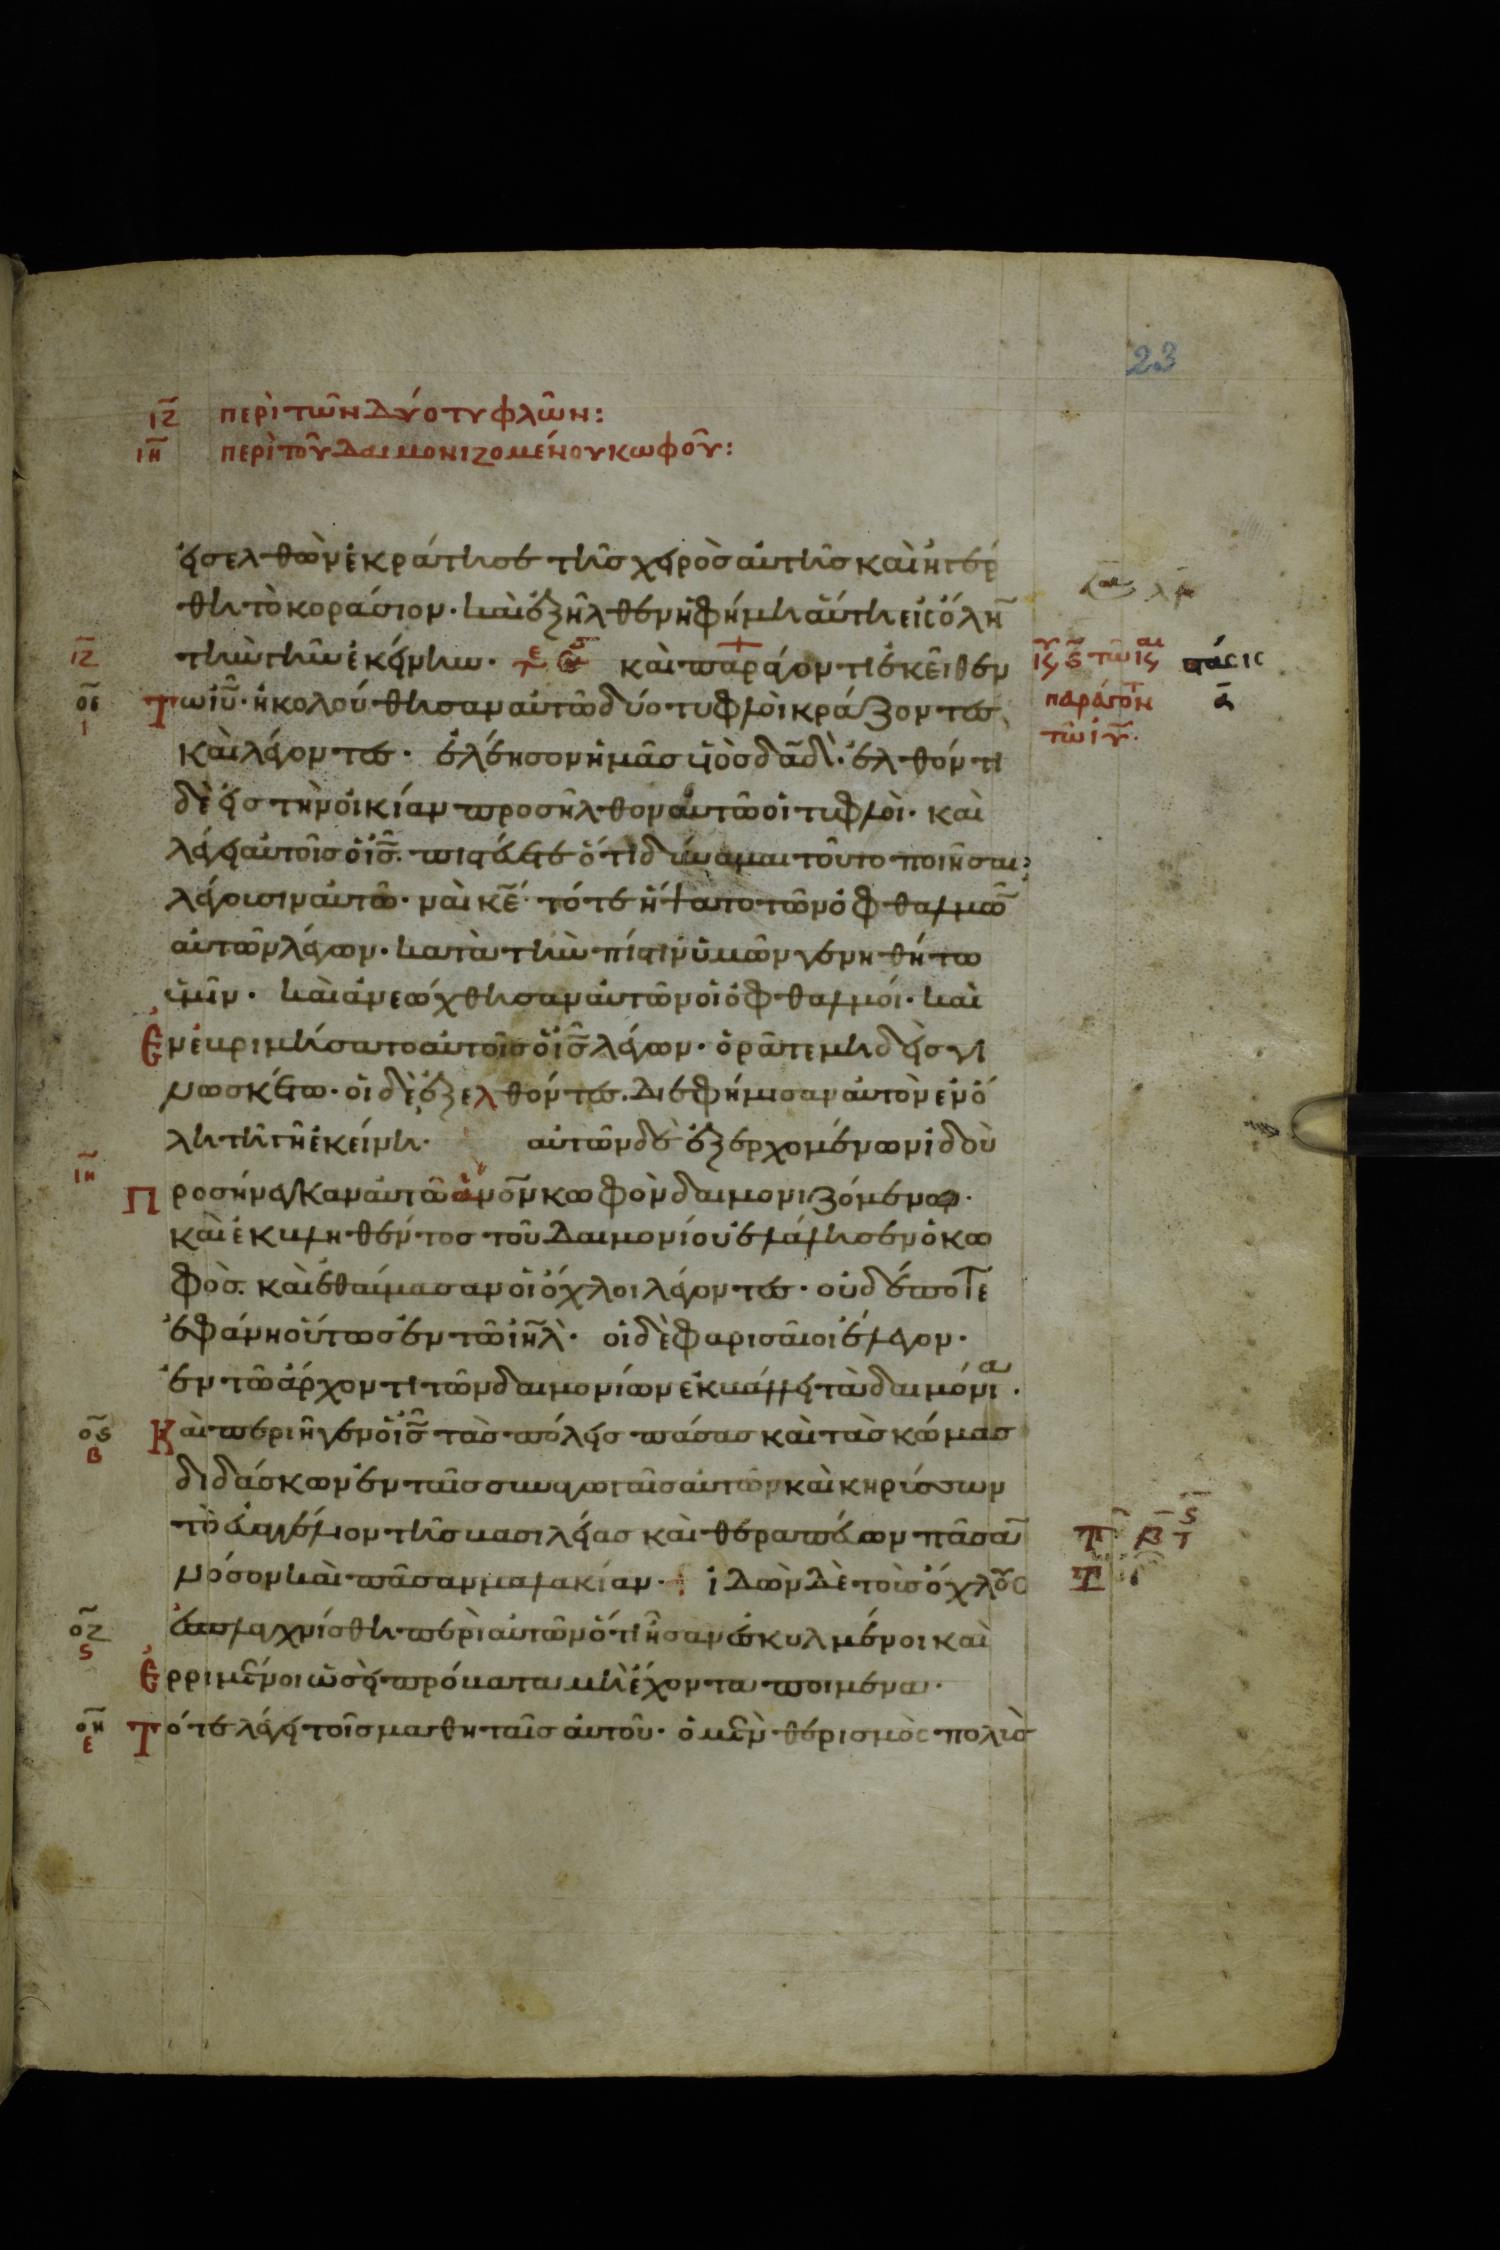 23
ιζ περὶ τῶν δύο τυφλῶν:
ιη περὶ τοῦ δαιμονιζομένου κωφοῦ:
εἰσελθὼν ἐκράτησε τῆς χειρὸς αὐτῆς καὶ ἠγέρ
θη τὸ κοράσιον· καὶ ἐξῆλθεν ἡ φήμη αὕτη εἰς ὅλη̅
ιζ τὴν γῆν ἐκείνην· τε καὶ παράγοντι ἐκεῖθεν
οε ι τῶ ιῦ· ἠκολούθησαν αὐτῶ δύο τυφλοὶ κράζοντες
παράγον
τῶ ιῦ·
καὶ λέγοντες· ἐλέησον ἡμᾶς υἱὸς δαδ· ἐλθόντι
δὲ εἰς τὴν οἰκίαν προσῆλθον αὐτῶ οἱ τυφλοὶ· καὶ
λέγει αὐτοῖς ὁ ις· πιστεύετε ὅτι δύναμαι τοῦτο ποιῆσαι;
λέγουσιν αὐτῶ· ναὶ κε· τότε ἥψατο τῶν ὀφθαλμῶ̅
αὐτῶν λέγων· κατὰ τὴν πίστιν ὑμῶν γενηθήτω
ὑμῖν· καὶ ἀνεώχθησαν αὐτῶν οἱ ὀφθαλμοί· καὶ
ἐνεβριμήσατο αὐτοῖς ὁ ις λέγων· ὁρᾶτε μηδεὶς γι
νωσκέτω· οἱ δὲ ἐξελθόντες· διεφήμισαν αὐτὸν ἐν ὅ
λη τῆ γῆ ἐκείνη· αὐτῶν δὲ ἐξερχομένων ἰδοὺ
ιη προσήνεγκαν αὐτῶ ἀνον κωφὸν δαιμονιζόμενον·
καὶ ἐκβληθέντος τοῦ δαιμονίου ἐλάλησεν ὁ κω
φὸς· καὶ ἐθαύμασαν οἱ ὄχλοι λέγοντες· οὐδέποτε
ἐφάνη οὕτως ἐν τῶ ιηλ· οἱ δὲ φαρισαῖοι ἔλεγον·
ἐν τῶ ἄρχοντι τῶν δαιμονίων ἐκβάλλει τὰ δαιμόνια·
ος β καὶ περιῆγεν ὁ ις τὰς πόλεις πάσας καὶ τὰς κώμας
διδάσκων ἐν ταῖς συναγωγαῖς αὐτῶν καὶ κηρύσσων
τὸ εὐαγγέλιον τῆς βασιλείας καὶ θεραπεύων πᾶσα̅
νόσον καὶ πᾶσαν μαλακίαν· ἰδὼν δὲ τοὺς ὄχλους
οζ ς ἐσπλαγχνίσθη περὶ αὐτῶν ὅτι ἦσαν ἐσκυλμένοι καὶ
ἐρριμένοι ὡσεὶ πρόβατα μὴ ἔχοντα ποιμένα·
οη ε τότε λέγει τοῖς μαθηταῖς αὐτοῦ· ὁ μὲν θερισμὸς πολὺς